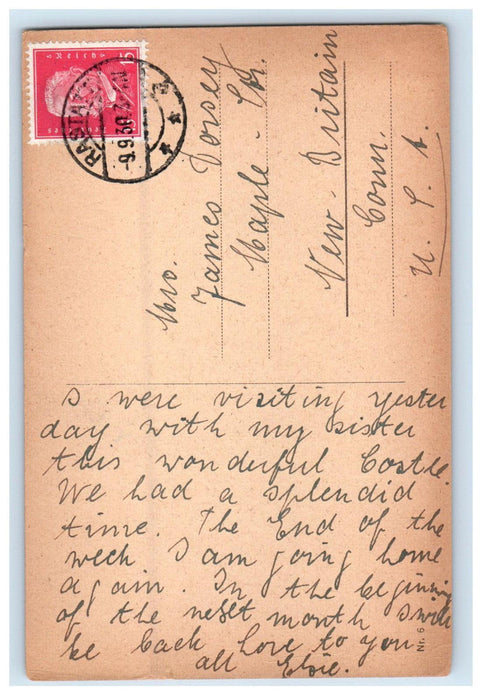 RASTATT
9.9.30.
* *
Mrs.
James Dorsey
Maple - Str.
New-Britain
Conn.
U. S. A.
I were visiting yester
day with my sister
this wonderful Castle.
We had a splendid
time. The End of the
week I am going home
again. In the beginning
of the next month I will
be back. Love to you
all Elsie.
Nr. 6